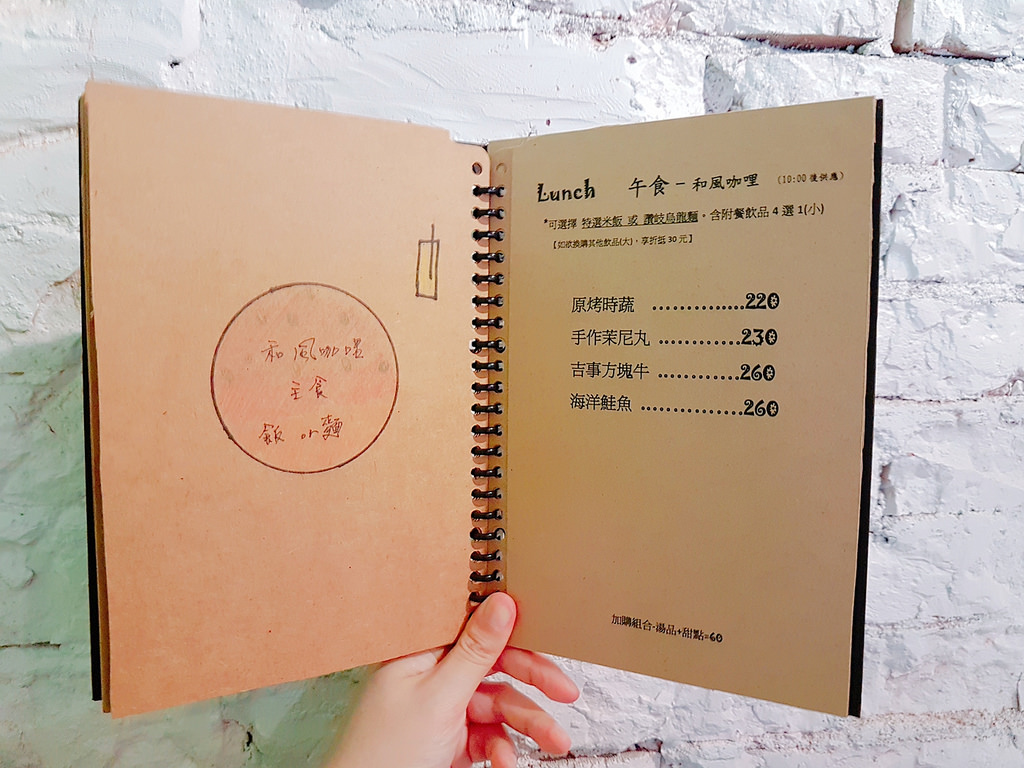 和風咖哩
主食
飯 or 麵
Lunch 午食 - 和風咖哩 (10:00 後供應)
*可選擇 特選米飯 或 讚岐烏龍麵。含附餐飲品 4 選 1(小)
【如欲換購其他飲品(大)，享折抵 30 元】
原烤時蔬 ..............220
手作茉尼丸 .............230
吉事方塊牛 .............260
海洋鮭魚 ................260
加購組合-湯品+甜點=60